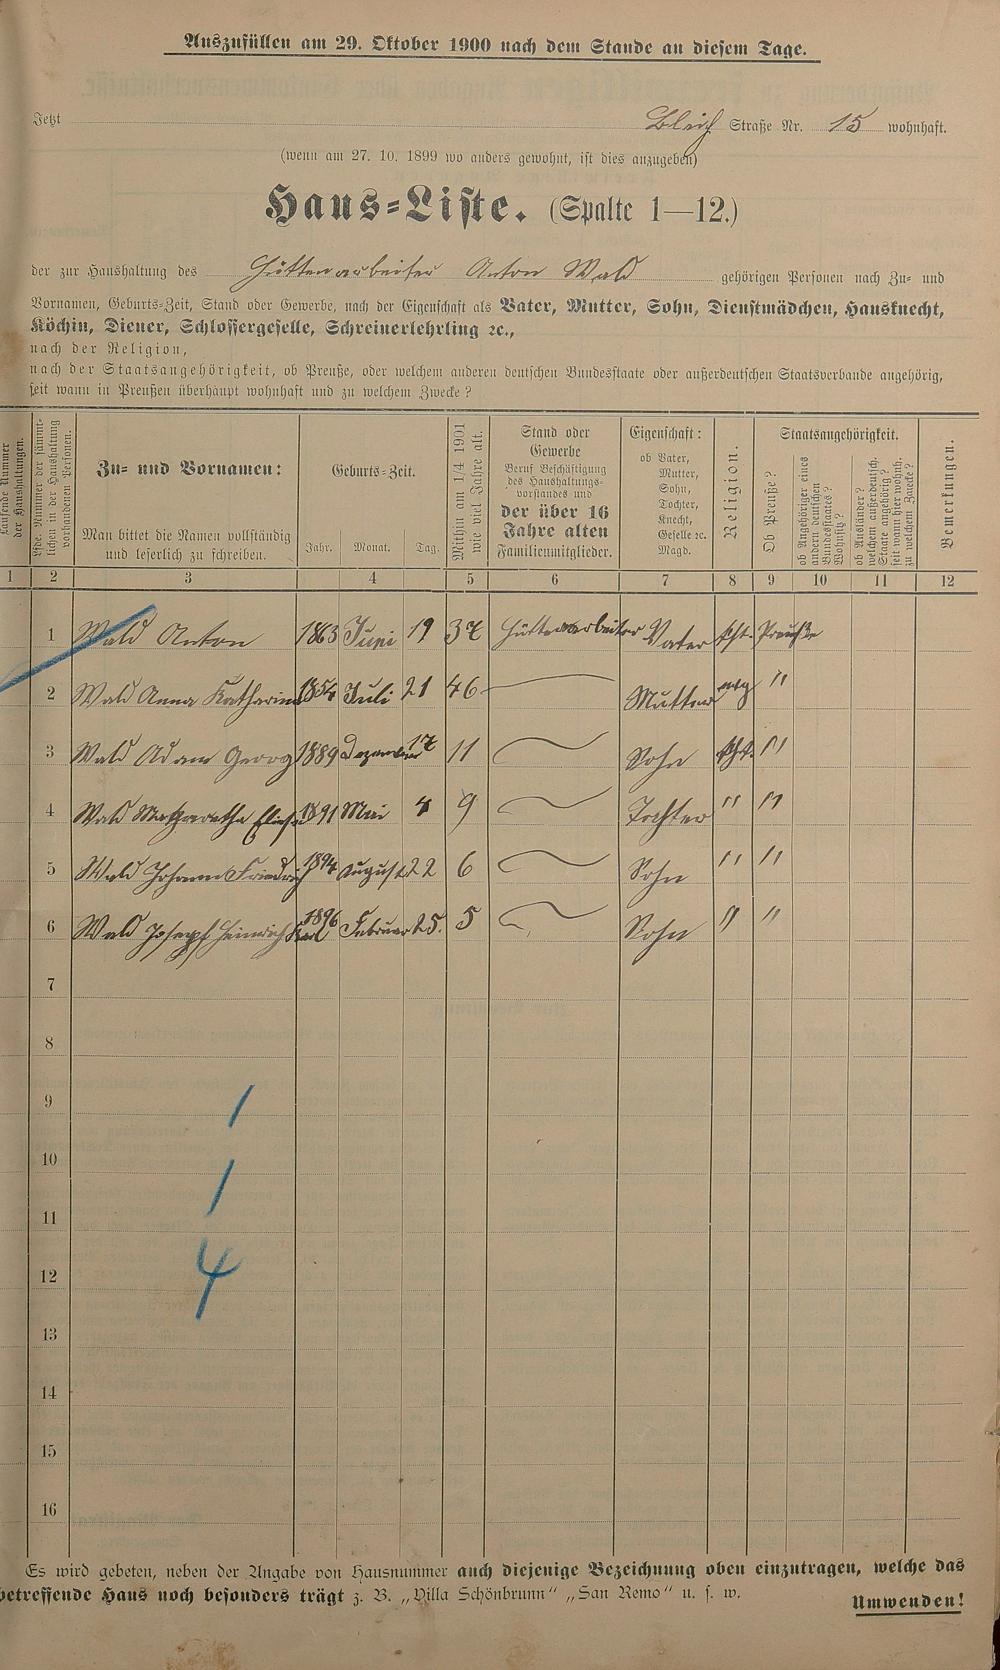 Auszufüllen am 29. Oktober 1900 nach dem Stande an diesem Tage.
Jetzt Bleich Straße Nr. 15 wohnhaft.
(wenn am 27. 10. 1899 wo anders gewohnt, ist dies anzugeben)
Haus-Liste. (Spalte 1—12.)
der zur Haushaltung des Hüttenarbeiter Anton Wald gehörigen Personen nach Zu- und
Vornamen, Geburts-Zeit, Stand oder Gewerbe, nach der Eigenschaft als Vater, Mutter, Sohn, Dienstmädchen, Hausknecht,
Köchin, Diener, Schlossergeselle, Schreinerlehrling ꝛc.,
nach der Religion,
nach der Staatsangehörigkeit, ob Preuße, oder welchem anderen deutschen Bundesstaate oder außerdeutschen Staatsverbande angehörig,
seit wann in Preußen überhaupt wohnhaft und zu welchem Zwecke?
Laufende Nummer der Haushaltungen.
Lfde. Nummer der sämmtlichen in der Haushaltung vorhandenen Personen.
Zu- und Vornamen:
Man bittet die Namen vollständig
und leserlich zu schreiben.
Geburts-Zeit.
Jahr. Monat. Tag.
Mithin am 1/4 1901 wie viel Jahre alt.
Stand oder
Gewerbe
Beruf Beschäftigung
des Haushaltungs-
vorstandes und
der über 16
Jahre alten
Familienmitglieder.
Eigenschaft:
ob Vater,
Mutter,
Sohn,
Tochter,
Knecht,
Geselle ꝛc.
Magd.
Religion.
Staatsangehörigkeit.
Ob Preuße?
ob Angehöriger eines andern deutschen Bundesstaates? Wohnsitz?
ob Ausländer? welchem außerdeutsch. Staate angehörig? seit wann hier wohnh. zu welchem Zwecke?
Bemerkungen.
1 2 3 4 5 6 7 8 9 10 11 12
1 Wald Anton 1863 Juni 19 37 Hüttenarbeiter Vater kth. Preuße
2 Wald Anna Katharina 1854 Juli 21 46 Mutter evg "
3 Wald Adam Georg 1889 Dezember 17 11 Sohn kth. "
4 Wald Margaretha 1891 Mai 4 9 Tochter " "
5 Wald Johann Friedrich 1894 August 22 6 Sohn " "
6 Wald Joseph Heinrich Karl 1896 Februar 25. 5 Sohn " "
7
8
9
1
10
1
11
12
4
13
14
15
16
Es wird gebeten, neben der Angabe von Hausnummer auch diejenige Bezeichnung oben einzutragen, welche das
betreffende Haus noch besonders trägt z. B. „Villa Schönbrunn“ „San Remo“ u. s. w.
Umwenden!